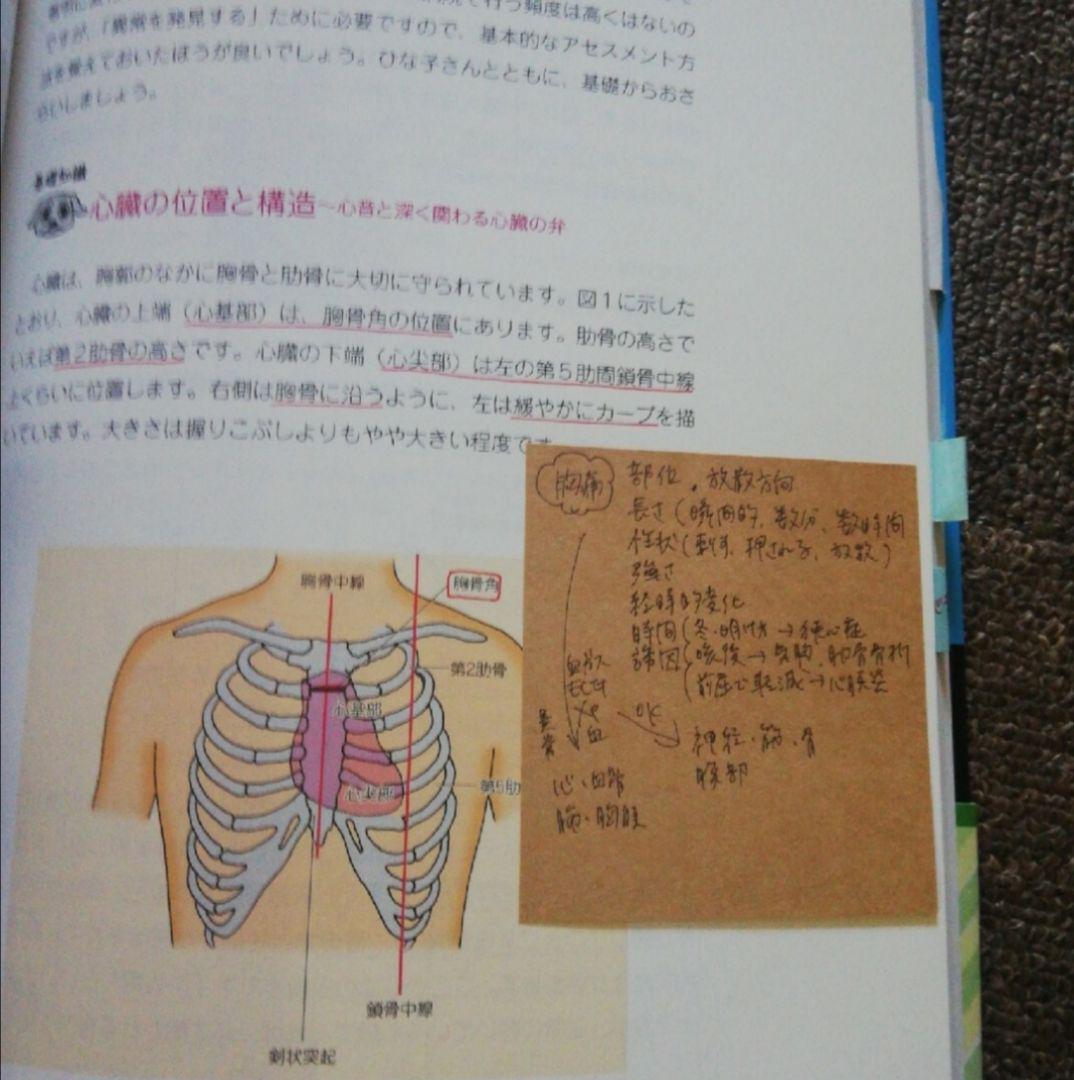 で行う頻度は高くはないの
ですが、「異常を発見する」ために必要ですので、基本的なアセスメント方
法を覚えておいたほうが良いでしょう。ひな子さんとともに、基礎からおさ
らいしましょう。
基礎知識
心臓の位置と構造～心音と深く関わる心臓の弁
心臓は、胸郭のなかに胸骨と肋骨に大切に守られています。図1に示した
とおり、心臓の上端（心基部）は、胸骨角の位置にあります。肋骨の高さで
いえば第2肋骨の高さです。心臓の下端（心尖部）は左の第5肋間鎖骨中線
上くらいに位置します。右側は胸骨に沿うように、左は緩やかにカーブを描
いています。大きさは握りこぶしよりもやや大きい程度です
胸骨中線
胸骨角
第2肋骨
心基部
心尖部
第5肋
鎖骨中線
剣状突起
胸痛
部位。放散方向
長さ（瞬間的、数分、数時間
性状（、押される、放散）
強さ
経時的変化
時間（冬・明け方→狭心症
誘因（咳後→気胸、肋骨骨折
（前座で軽減→心膜炎
血ガス
ECG
Xp
血
OK
異常
神経・筋・骨
腹部
心・血管
肺・胸膜